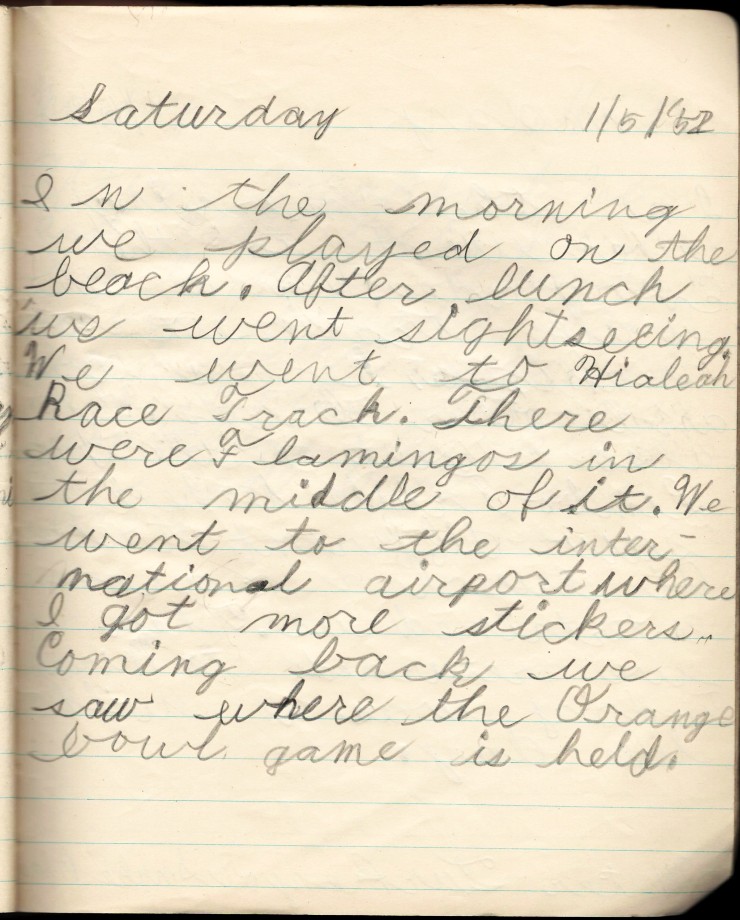 Saturday 1/5/'52
In the morning
we played on the
beach. After lunch
we went sightseeing.
We went to Hialeah
Race Track. There
were Flamingos in
the middle of it. We
went to the inter-
national airport where
I got more stickers.
Coming back we
saw where the Orange
bowl game is held.